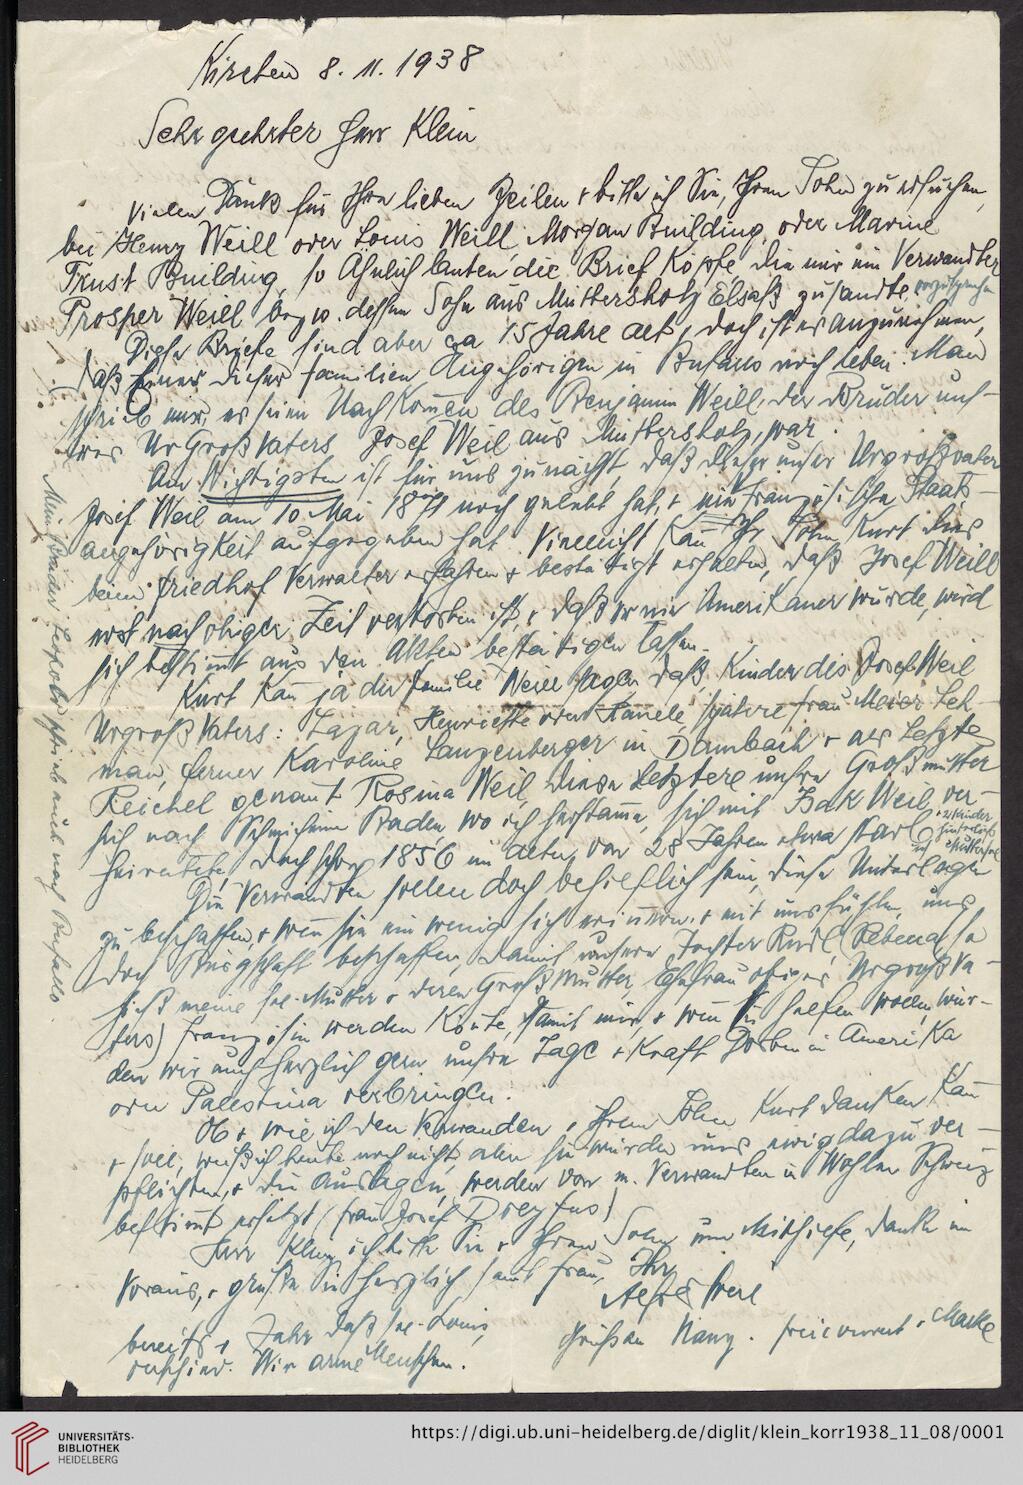 Kirchen 8. 11. 1938
Sehr geehrter Herr Klein
Vielen Dank für Ihre lieben Zeilen + bitte ich Sie, Ihren Sohn zu ersuchen,
bei Henry Weill oder Louis Weill Morgan Building, oder Marine
Trust Building, so Ähnlich lauten die Brief Köpfe die mir ein Verwandter
Prosper Weill bezw. dessen Sohn aus Muttersholz Elsaß zusandte, vorzusprechen
Diese Briefe sind aber ca 15 Jahre alt, doch ist es anzunehmen,
daß Einer dieser Familien Angehörigen in Bufallo noch leben. Man
schrieb mir, es seien Nachkomen des Benjamin Weill, der Bruder uns-
res UrGroßVaters Josef Weil aus Muttersholz, war.
Am Wichtigsten ist für uns zunächst, daß dieser unser Urgroßvater
Josef Weil am 10 Mai 1871 noch gelebt hat, + nie französische Staats-
angehörigkeit aufgegeben hat. Vielleicht kan Ihr Sohn Kurt dies
beim Friedhof Verwalter erfahren + bestätigt erhalten, daß Josef Weill
erst nach obiger Zeit verstorben ist, + daß er nie Amerikaner wurde, wird
sich bestimt aus den Akten bestätigen lassen.
Kurt kan ja der Familie Weill sagen daß Kinder des Josef Weil
Urgroß Vaters: Lazar, Henriette oder Hanele spätere Frau Meier Leh-
man, ferner Karoline Lanzenberger in Dambach + als Letzte
Reichel genant Rosina Weil, diese Letztere unsre Großmutter
sich nach Schmieheim Baden, wo ich herstamme, sich mit Isak Weil ver-
heiratete, doch schon 1856 im Alter von 28 Jahren etwa starb
+ 2 Kinder hinterließ
Die Verwandten sollen doch behilflich sein, diese Unterlagen
zu beschaffen, + wen sie ein wenig sich erinern + mit uns fühlen, uns
doch Bürgschaft beschaffen, damit unsere Tochter Rudl (Rebena so
hieß meine sel. Mutter + deren Großmutter, Ehefrau obiges Urgroßva-
ters) Französin werden könte, damit wir, + wen Sie helfen wollen, wür-
den wir auch herzlich gern unsre Tage + Kraft Dorben in Amerika
oder Palestina verbringen.
Ob + wie ich den Verwanden + Ihrem Sohn Kurt danken kan
+ soll, weiß ich heute noch nicht, aber sie würden uns ewig dazu ver-
pflichten, + die Auslagen, werden von m. Verwandten in Wohlen Schweiz
bestimt ersetzt (Frau Josef Dreyfus)
Herr Klein ich bitte Sie + Ihren Sohn um Mithilfe, danke im
Voraus, + grüße Sie herzlich samt Frau, Ihr
Alfred Weil
bereits 1 Jahr daß sel. Louis,
verschied. Wir arme Menschen.
Grüßen Nany. freicouvert + Marke
Mein Bruder Leopold schrieb auch nach Bufallo
UNIVERSITÄTS-
BIBLIOTHEK
HEIDELBERG
https://digi.ub.uni-heidelberg.de/diglit/klein_korr1938_11_08/0001